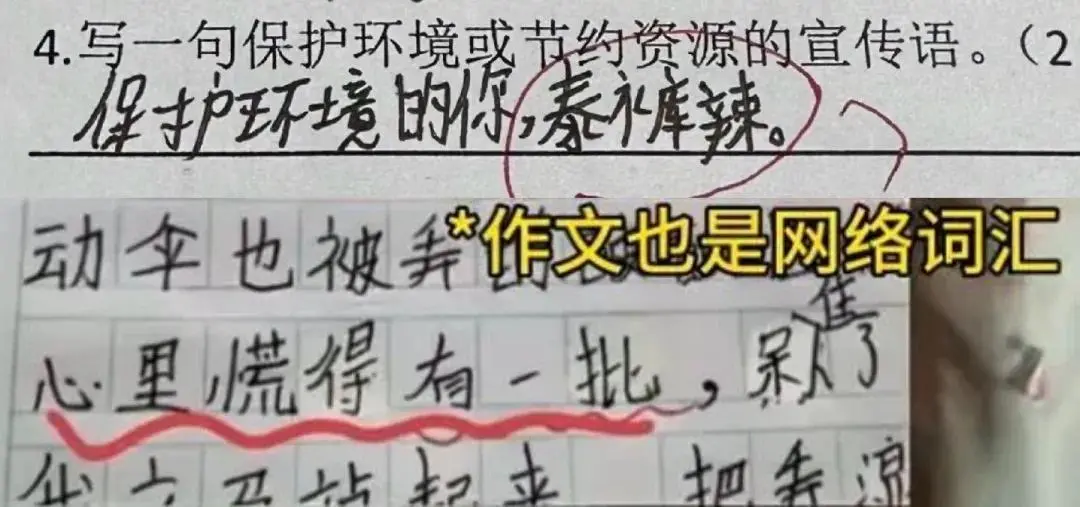 4.写一句保护环境或节约资源的宣传语。（2
保护环境的你,泰裤辣。
*作文也是网络词汇
动伞也被弄
心里慌得有一批，呆焦了
起来 把弄凉